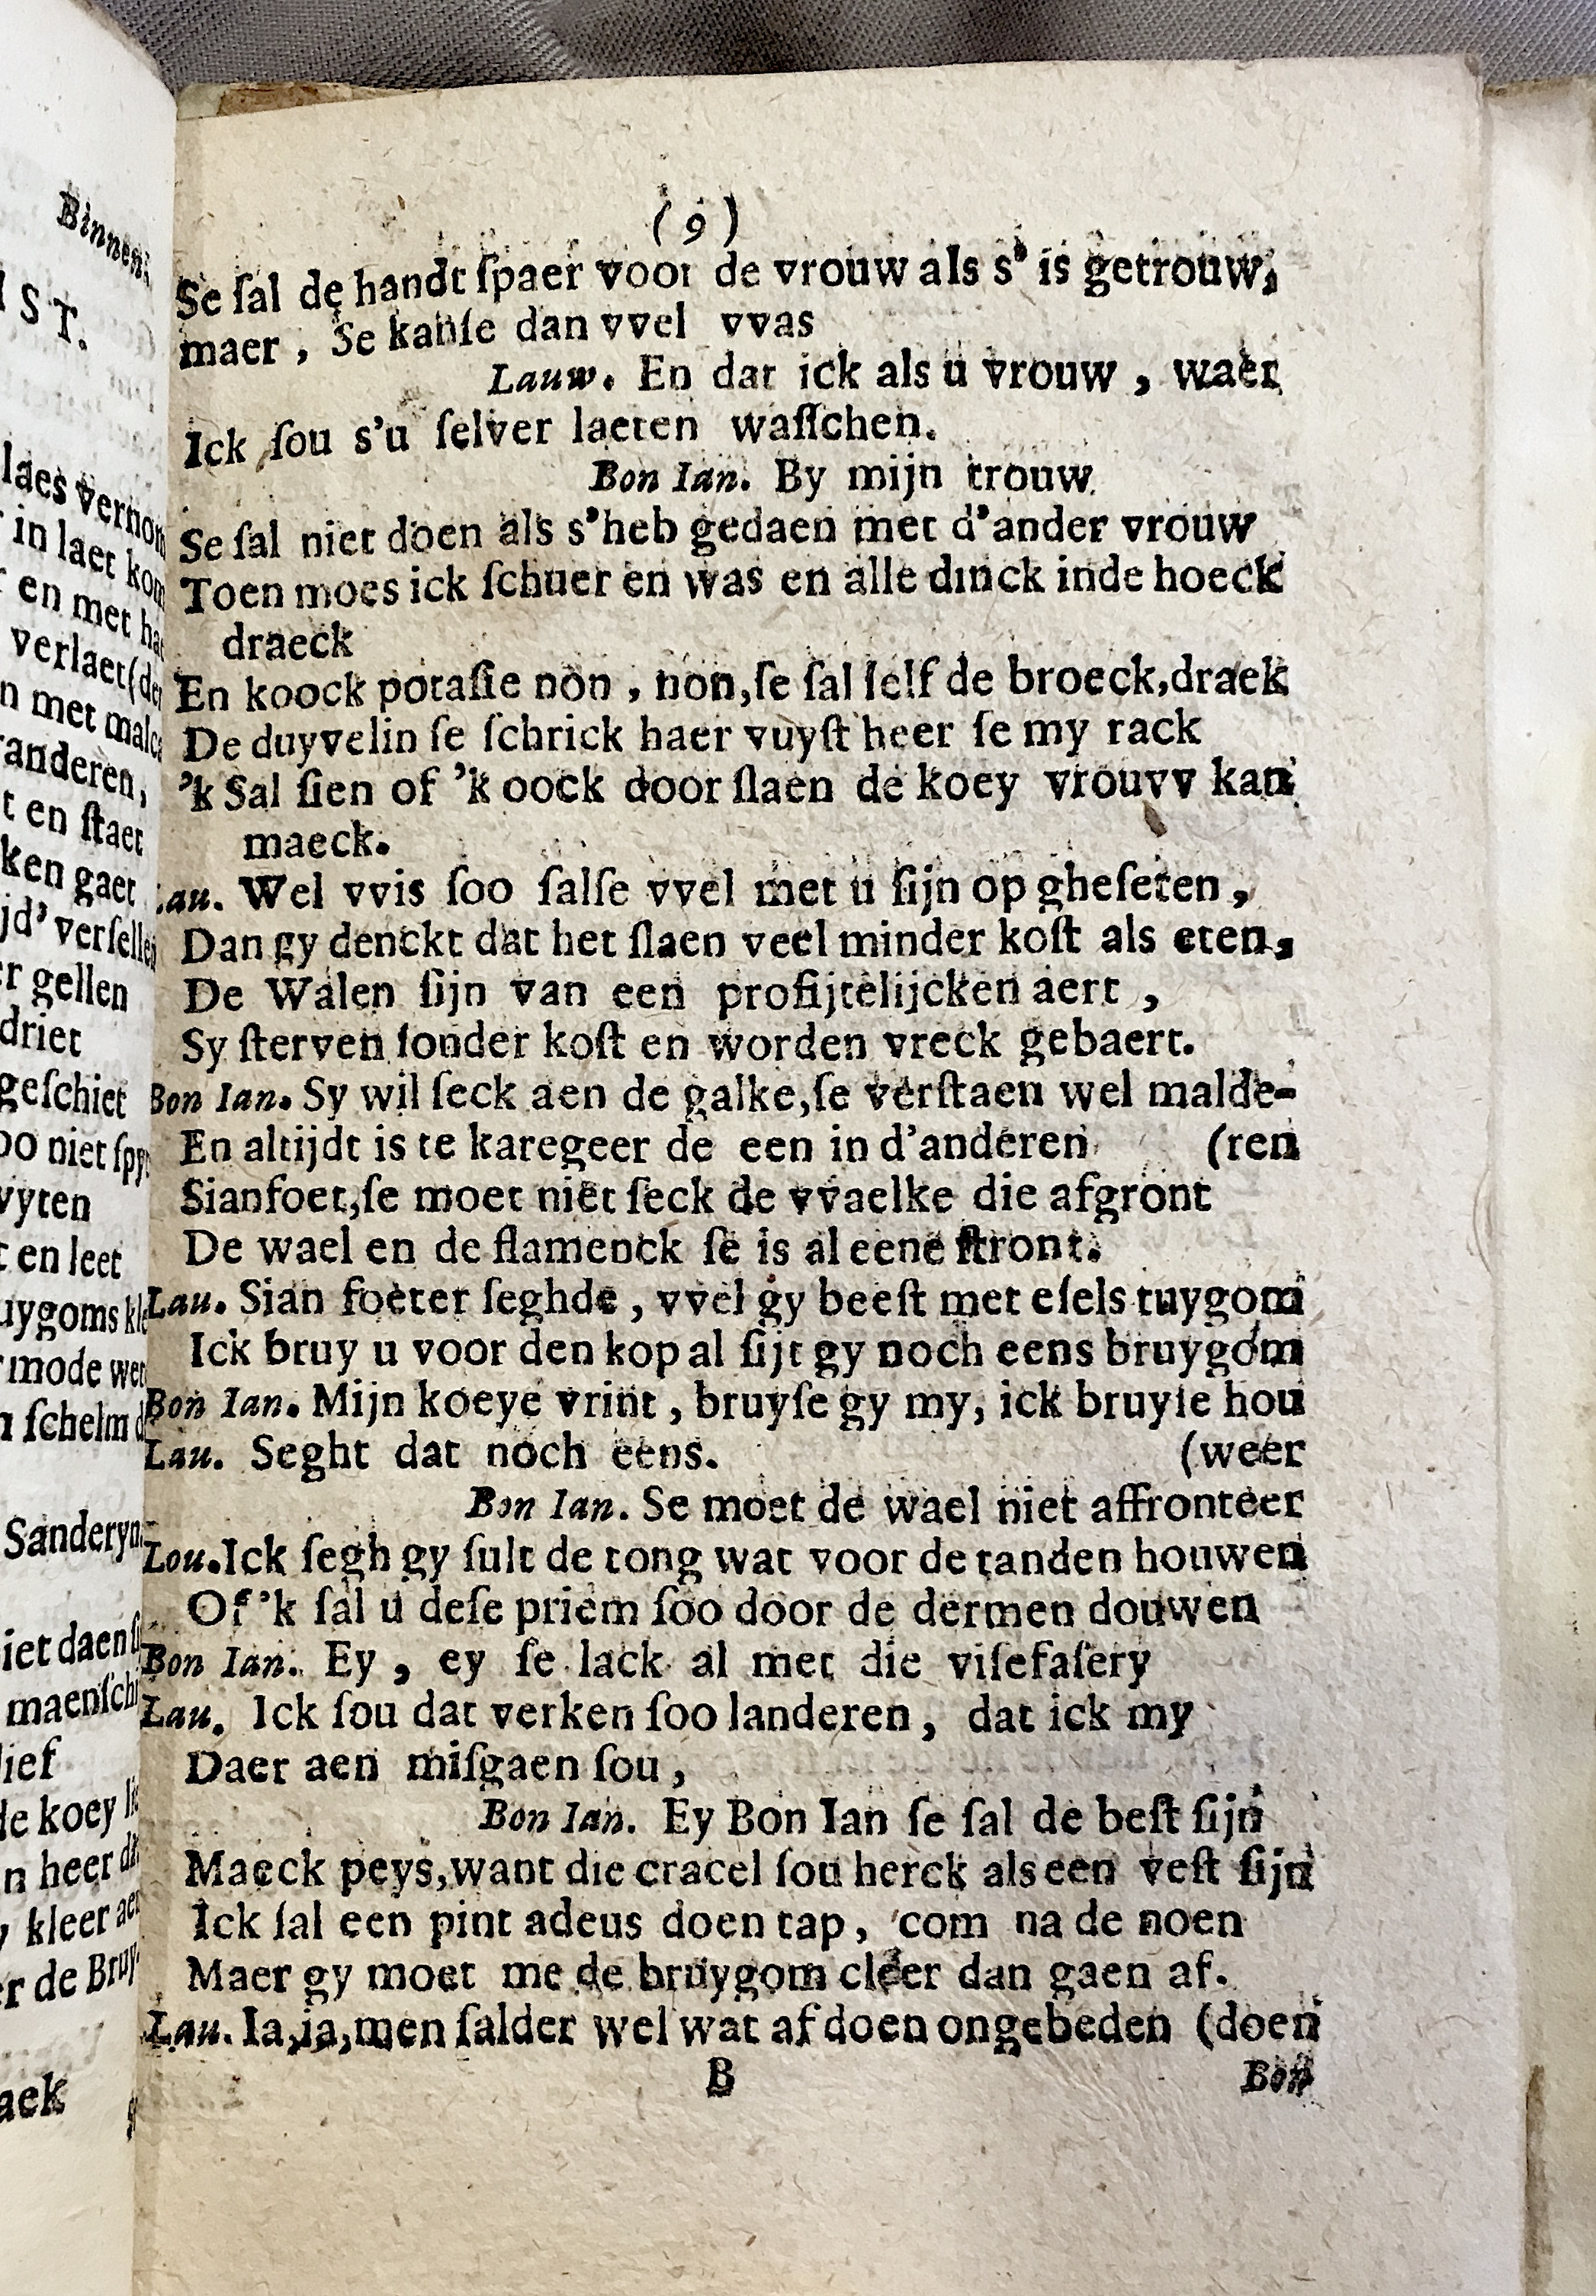 (9)
Se ſal de handt ſpaer voor de vrouw als s' is getrouw,
maer, Se kanſe dan vvel vvas
Lauw. En dat ick als u vrouw, waer
Ick ſou s'u ſelver laeten waſſchen.
Bon Ian. By mijn trouw
Se ſal niet doen als s'heb gedaen met d'ander vrouw
Toen moes ick ſchuer en was en alle dinck inde hoeck
draeck
En koock potaſie non, non, ſe ſal ſelf de broeck, draek
De duyvelin ſe ſchrick haer vuyſt heer ſe my rack
'k Sal ſien of 'k oock door ſlaen de koey vrouvv kan
maeck.
Lau. Wel vvis ſoo ſalſe vvel met u ſijn op gheſeten,
Dan gy denckt dat het ſlaen veel minder koſt als eten,
De Walen ſijn van een profijtelijcken aert,
Sy ſterven ſonder koſt en worden vreck gebaert.
Bon Ian. Sy wil ſeck aen de galke, ſe verſtaen wel malde-
En altijdt is te karegeer de een in d'anderen (ren
Sianfoet, ſe moet niet ſeck de vvaelke die afgront
De wael en de flamenck ſe is al eene ſtront.
Lau. Sian foeter ſeghde, vvel gy beeſt met eſels tuygom
Ick bruy u voor den kop al ſijt gy noch eens bruygom
Bon Ian. Mijn koeye vrint, bruyſe gy my, ick bruyſe hou
Lau. Seght dat noch eens. (weer
Bon Ian. Se moet de wael niet affronteer
Lou. Ick ſegh gy ſult de tong wat voor de tanden houwen
Of 'k ſal u deſe priem ſoo door de dermen douwen
Bon Ian. Ey, ey ſe lack al met die viſefaſery
Lau. Ick ſou dat verken ſoo landeren, dat ick my
Daer aen miſgaen ſou,
Bon Ian. Ey Bon Ian ſe ſal de beſt ſijn
Maeck peys, want die cracel ſou herck als een veſt ſijn
Ick ſal een pint adeus doen tap, com na de noen
Maer gy moet me de bruygom cleer dan gaen af.
Lau. Ia, ia, men ſalder wel wat af doen ongebeden (doen
B Bon